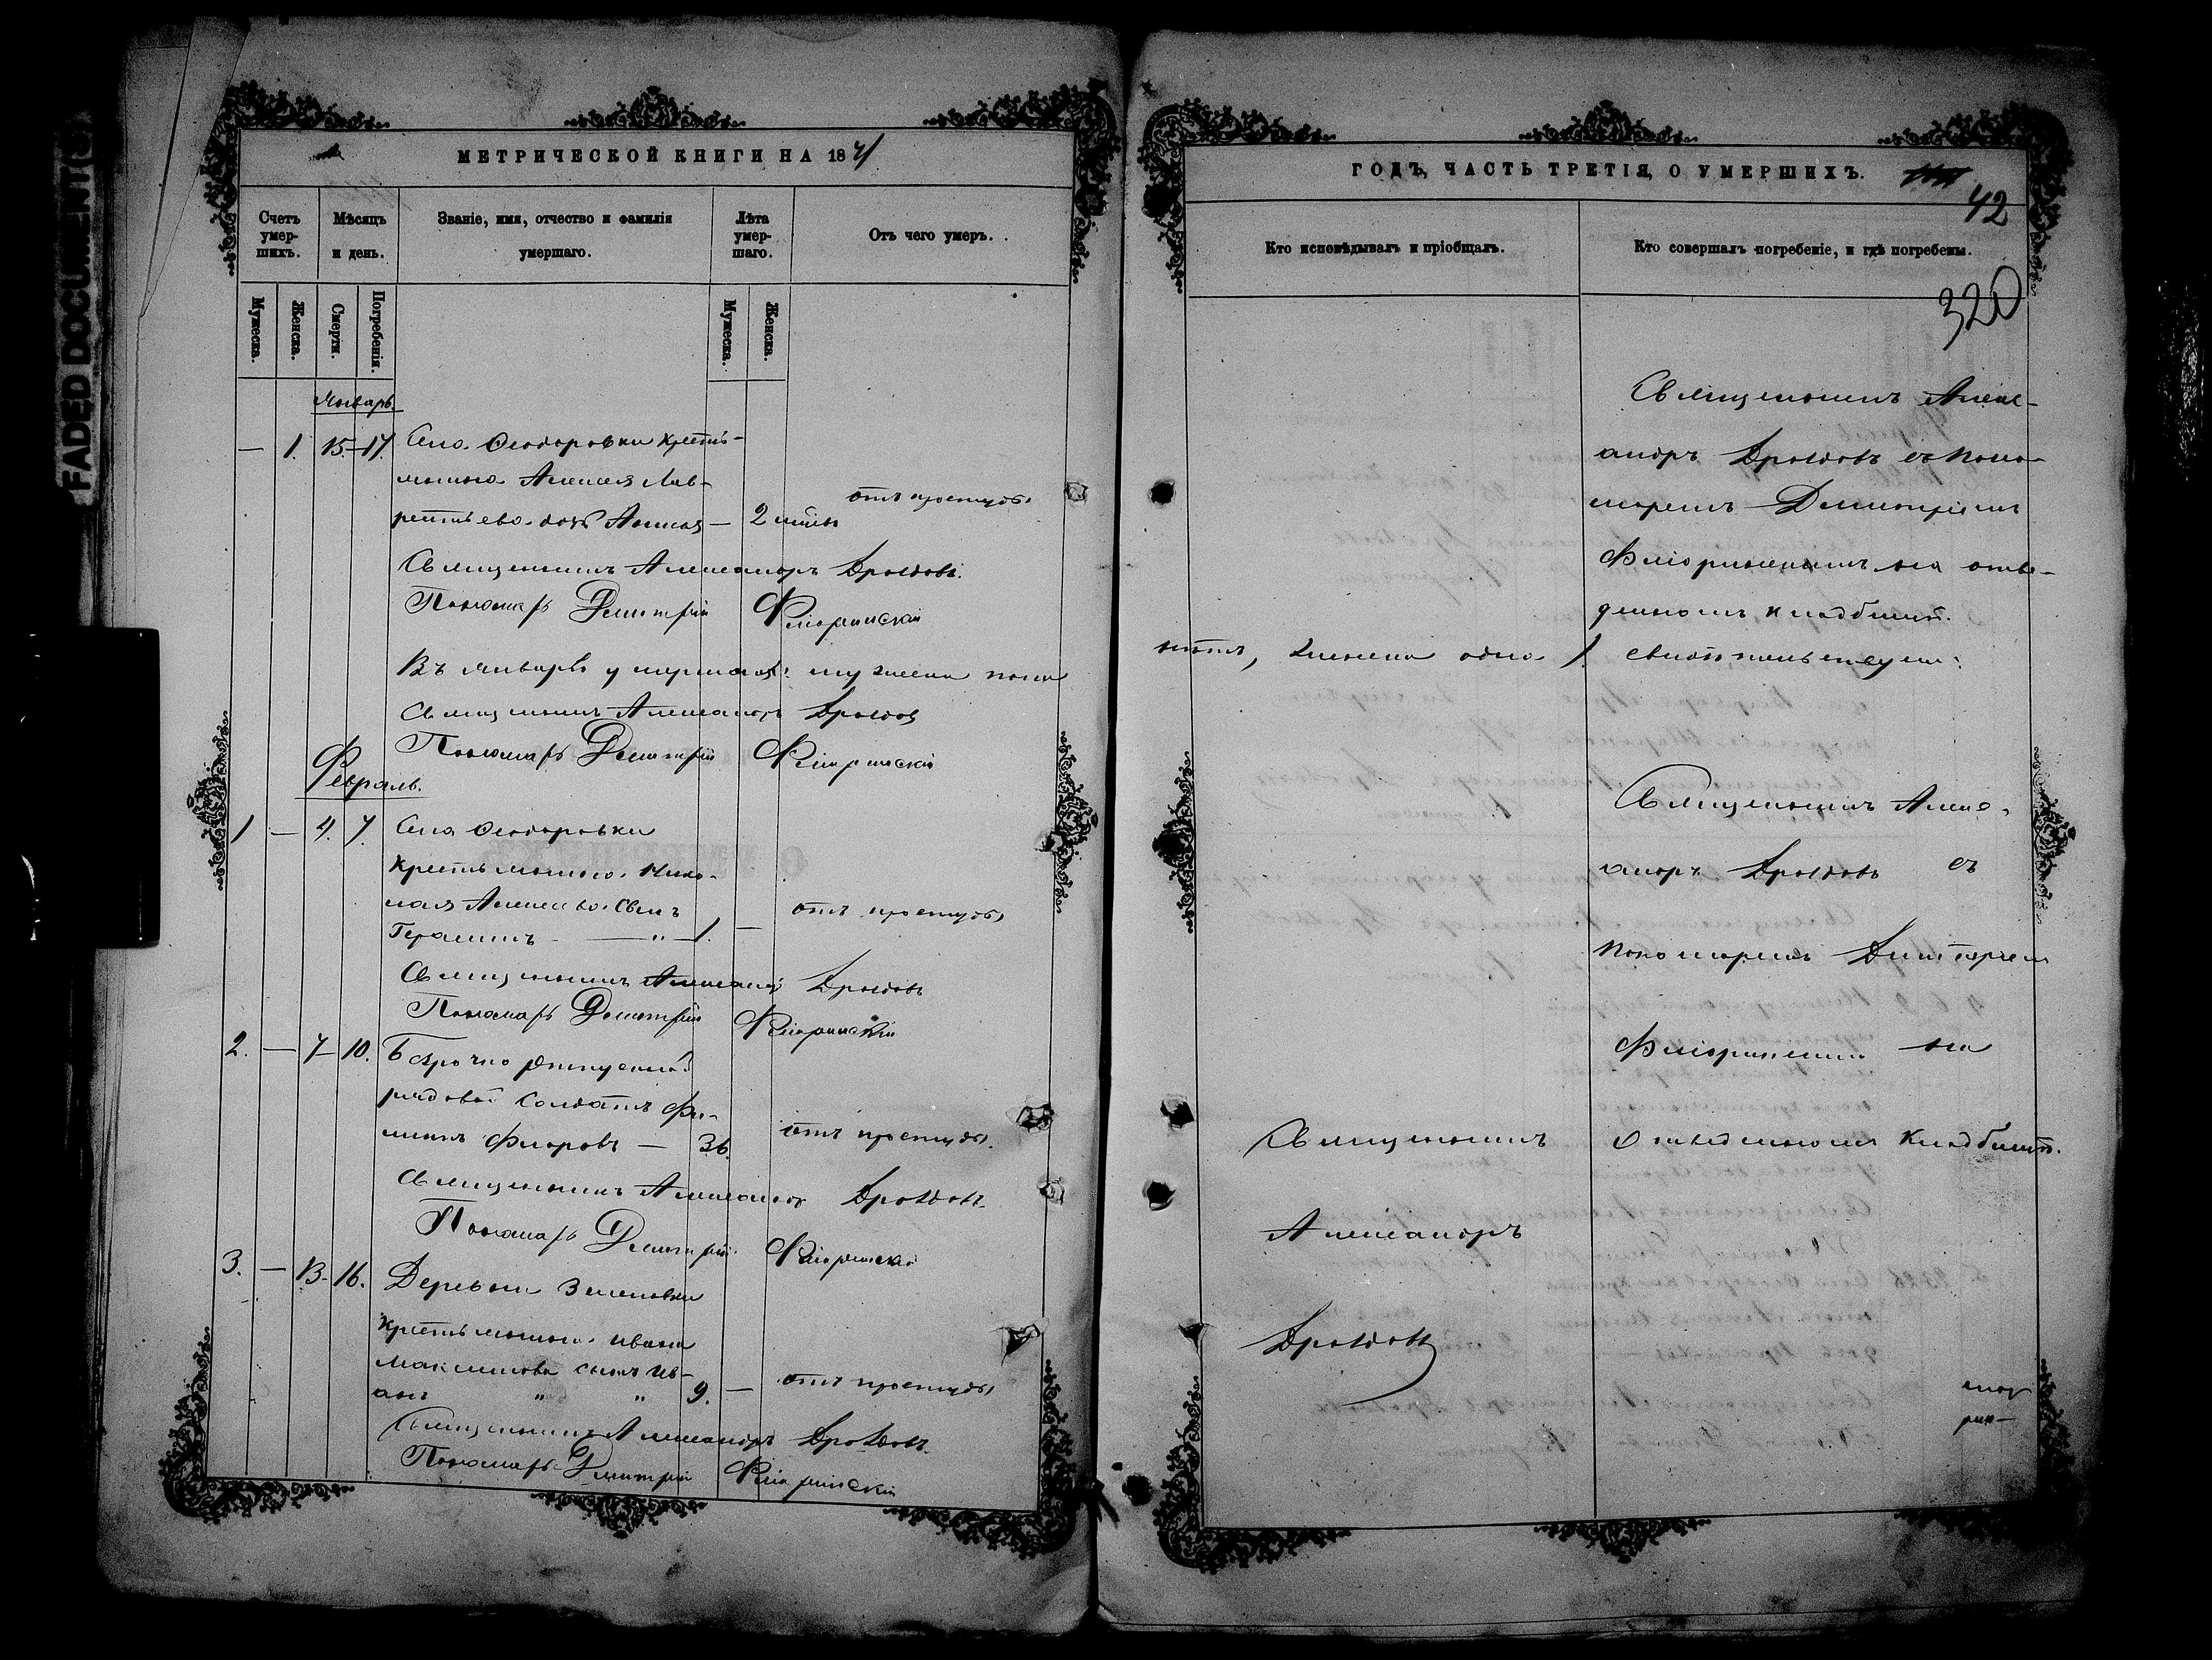 FADED DOCUMENT(S)
МЕТРИЧЕСКОЙ КНИГИ НА 187
Счетъ умер-шихъ.
Мѣсяцъ и день.
Званіе, имя, отчество и фамилія умершаго.
Лѣта умер-шаго.
Отъ чего умеръ.
Мужеска.
Женска.
Смерти.
Погребенія.
Мужеска.
Женска.
Январь.
— 1. 15.—17. Села Ѳеодоровки крестьянина Алексея Лав-
рентьева дочь — 2
отъ простуды
Священникъ Александръ Дроздовъ.
Пономарь Димитрій Флоринскій
Въ Январѣ умершихъ: мужеска пола
Священникъ Александръ Дроздовъ
Пономарь Димитрій Флоринскій
Февраль.
1 — 4. 7. Села Ѳеодоровки
крестьянина Нико-
лая Алексеева сынъ
Герасимъ — " — 1. —
отъ простуды
Священникъ Александръ Дроздовъ
Пономарь Димитрій Флоринскій
2. — 7 — 10. Безсрочно отпускной
рядовой солдатъ Фи-
липпъ — 36.
отъ простуды.
Священникъ Александръ Дроздовъ.
Пономарь Димитрій Флоринскій
3. — 13. 16. Деревни
крестьянина Ивана
Максимова сынъ Ив-
анъ " " 9. —
отъ простуды
Священникъ Александръ Дроздовъ.
Пономарь Димитрій Флоринскій
ГОДЪ, ЧАСТЬ ТРЕТІЯ, О УМЕРШИХЪ.
42
Кто исповѣдывалъ и пріобщалъ.
Кто совершалъ погребеніе, и гдѣ погребены.
320
Священникъ Алекс-
андръ Дроздовъ съ поно-
маремъ Димитріемъ
Флоринскимъ на отве-
денномъ кладбищѣ.
нѣтъ, женска одна 1.
Священникъ Алекс-
андръ Дроздовъ съ
пономаремъ Димитріемъ
Флоринскимъ на
отведенномъ кладбищѣ.
Священникъ
Александръ
Дроздовъ